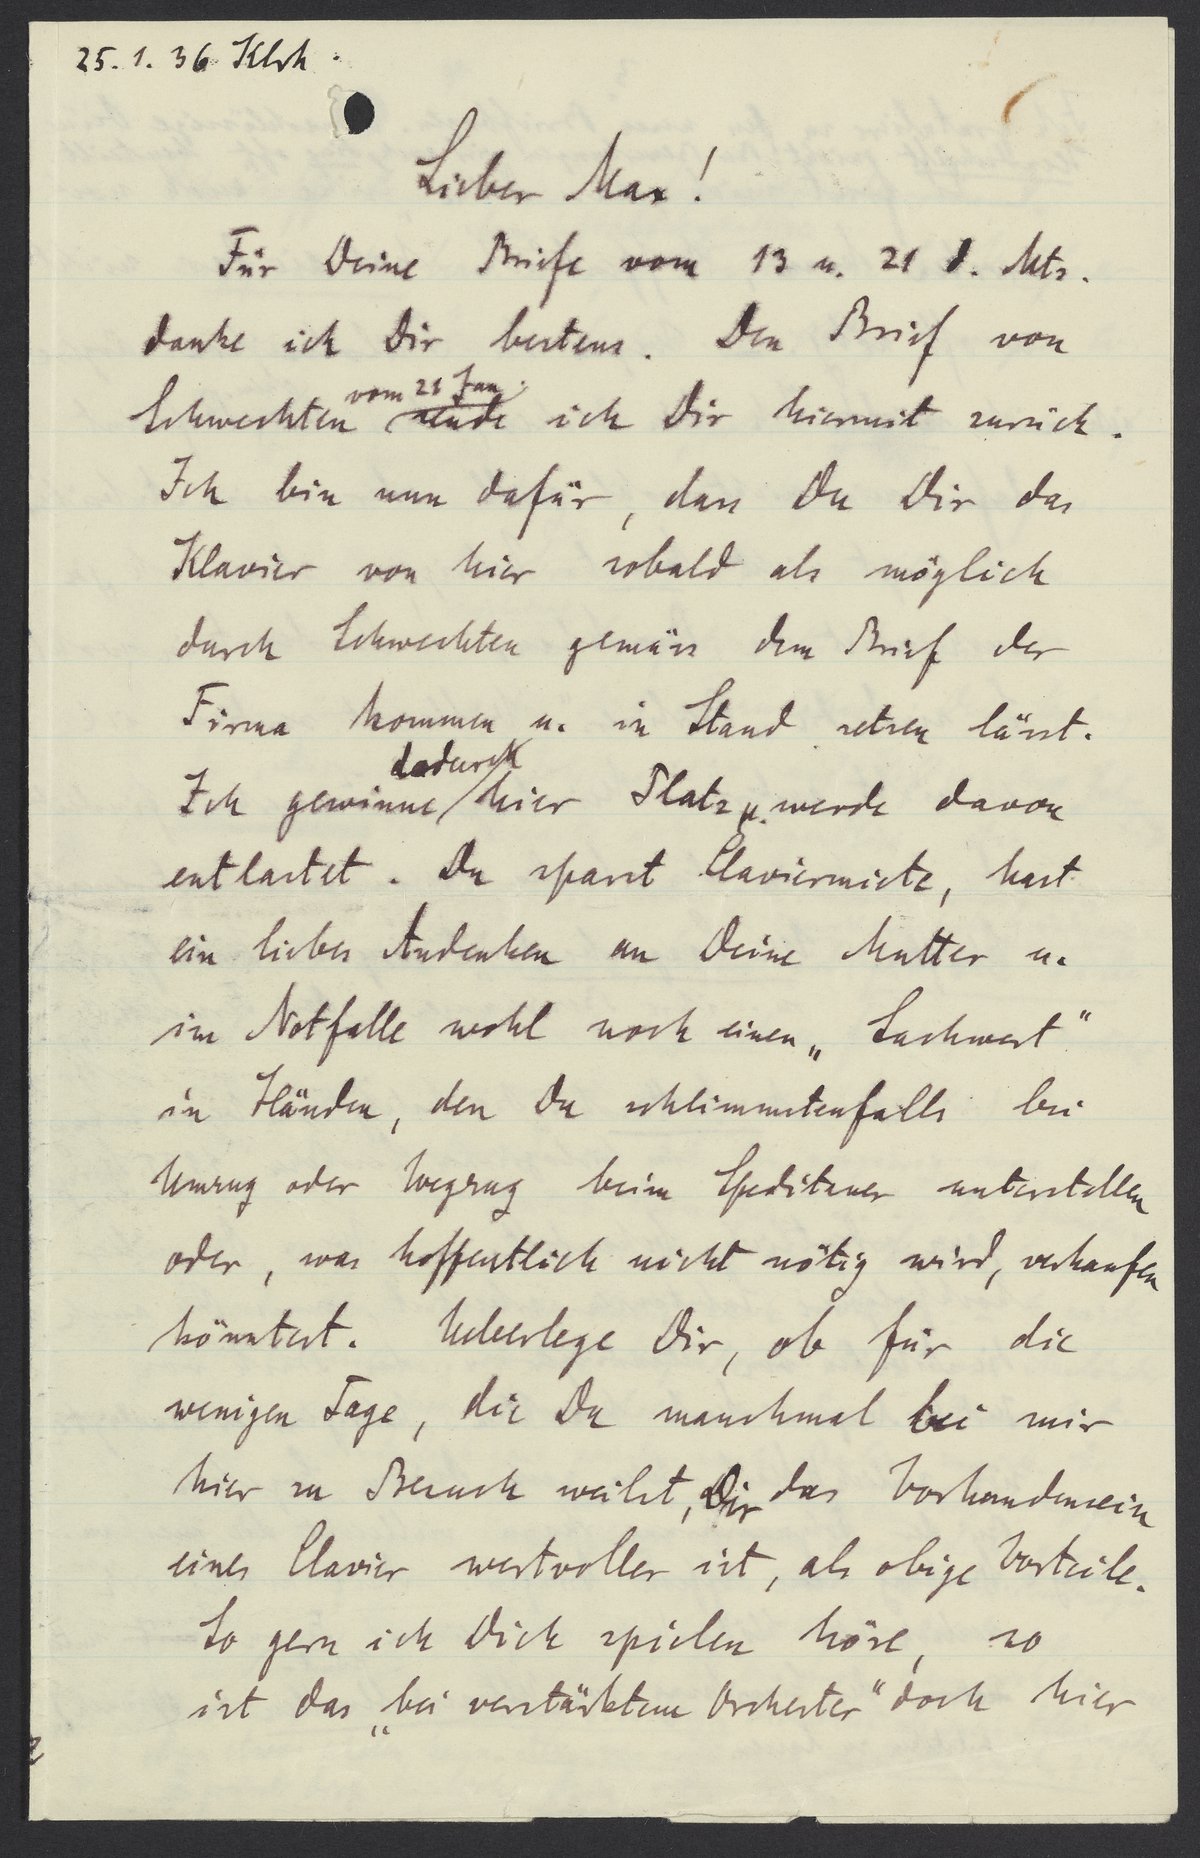 25. 1. 36 Klrh.
Lieber Max!
Für Deine Briefe vom 13 u. 21 d. Mts.
danke ich Dir bestens. Den Brief von
Schwechten vom 21 Jan. sende ich Dir hiermit zurück.
Ich bin nun dafür, dass Du Dir das
Klavier von hier sobald als möglich
durch Schwechten gemäss dem Brief der
Firma kommen u. in Stand setzen lässt.
Ich gewinne dadurch hier Platz u. werde davon
entlastet. Du sparst Claviermiete, hast
ein liebes Andenken an Deine Mutter u.
im Notfalle wohl noch einen „Sachwert“
in Händen, den Du schlimmstenfalls bei
Umzug oder Wegzug beim Spediteuer unterstellen
oder, was hoffentlich nicht nötig wird, verkaufen
könntest. Ueberlege Dir, ob für die
wenigen Tage, die Du manchmal bei mir
hier zu Besuch weilst, Dir das Vorhandensein
eines Clavier wertvoller ist, als obige Vorteile.
So gern ich Dich spielen höre, so
ist das „bei verstärktem Orchester“ doch hier